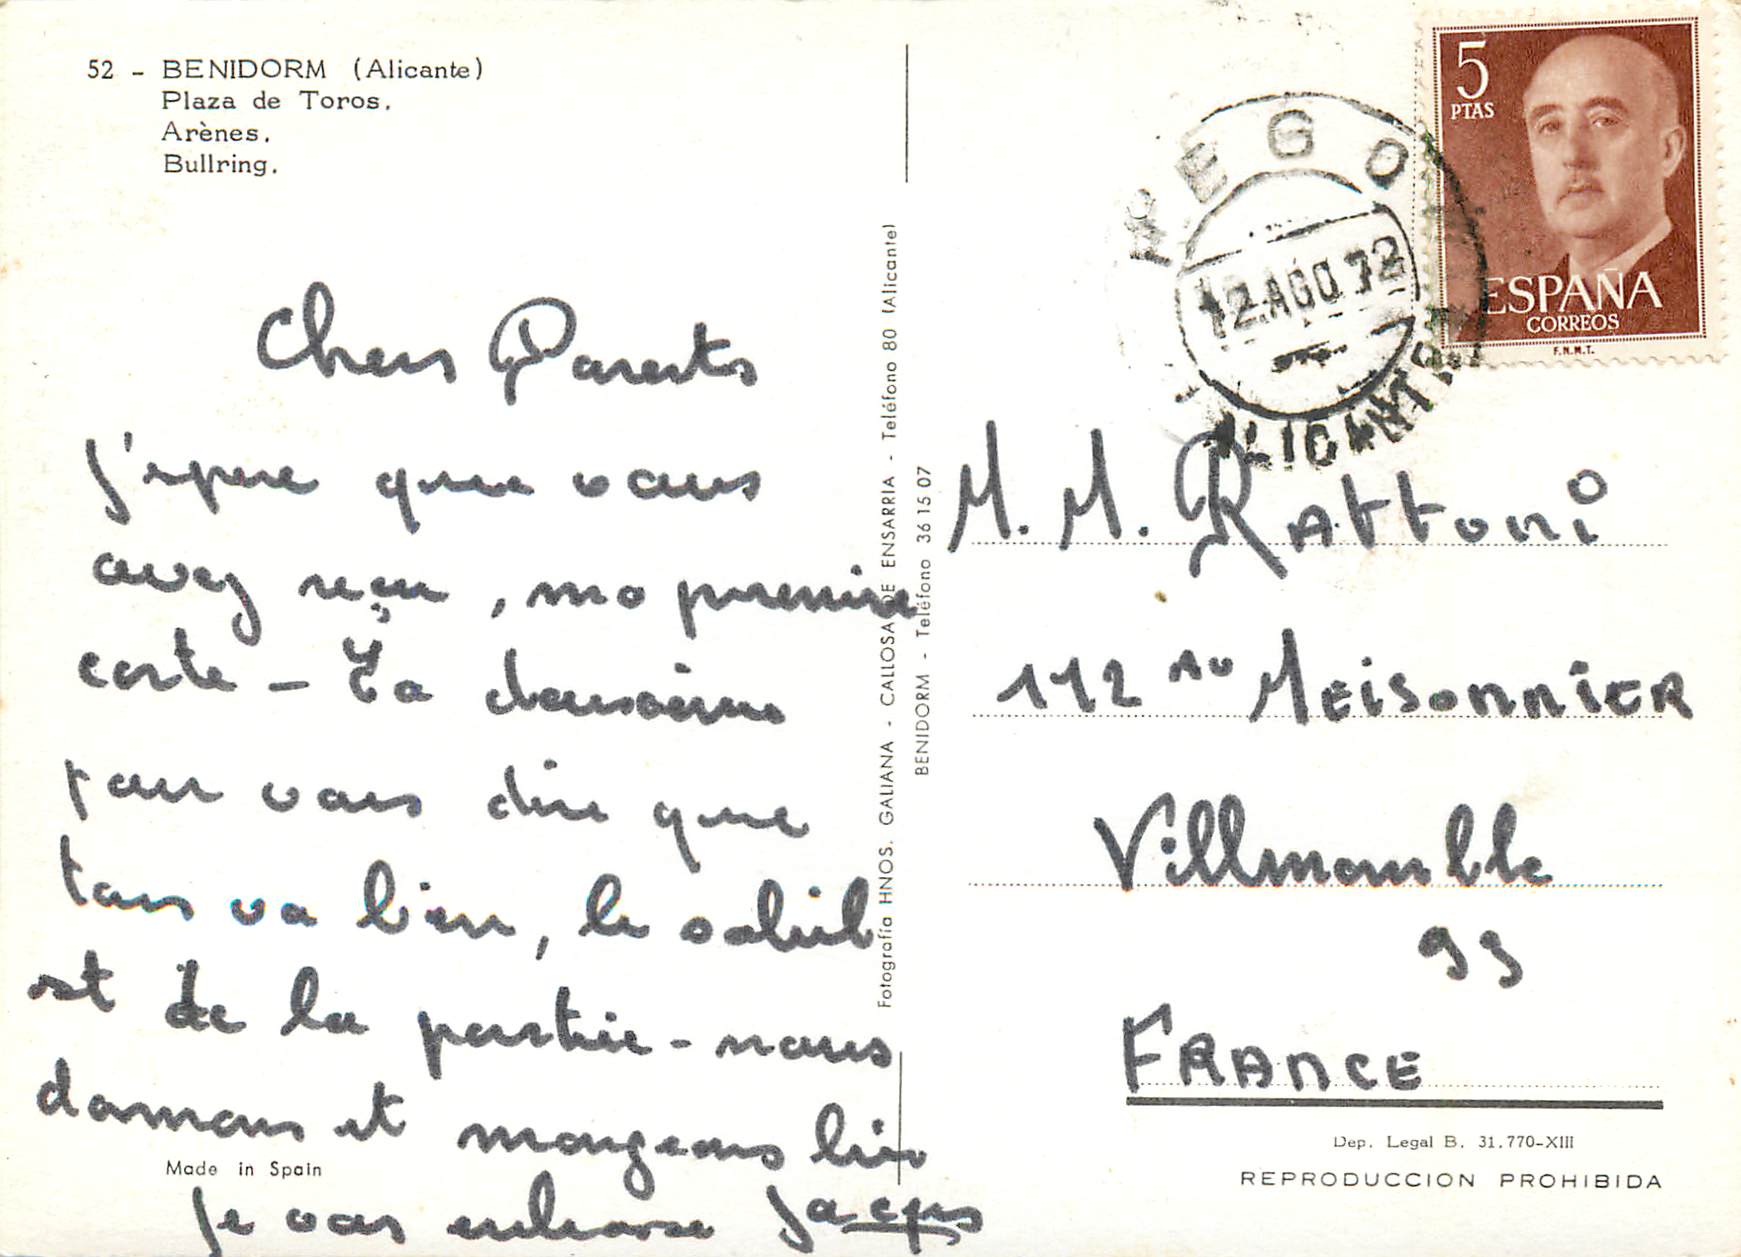 52 - BENIDORM (Alicante)
Plaza de Toros.
Arènes.
Bullring.
Chers Parents
J'espere que vous
avez reçu, ma premiere
carte - La deuxième
pour vous dire que
tous va bien, le soleil
est de la partie - nous
dormons et mangeons bien
Je vous embrasse Jacques
Made in Spain
Fotografía HNOS. GALIANA - CALLOSA DE ENSARRIA - Teléfono 80 (Alicante)
BENIDORM - Teléfono 36 15 07
PEGO
12.AGO.72
ALICANTE
5
PTAS
ESPAÑA
CORREOS
F.N.M.T.
M. M. Rattoni
112 Au MEISONNIER
Villmomble
93
FRANCE
Dep. Legal B. 31.770-XIII
REPRODUCCION PROHIBIDA